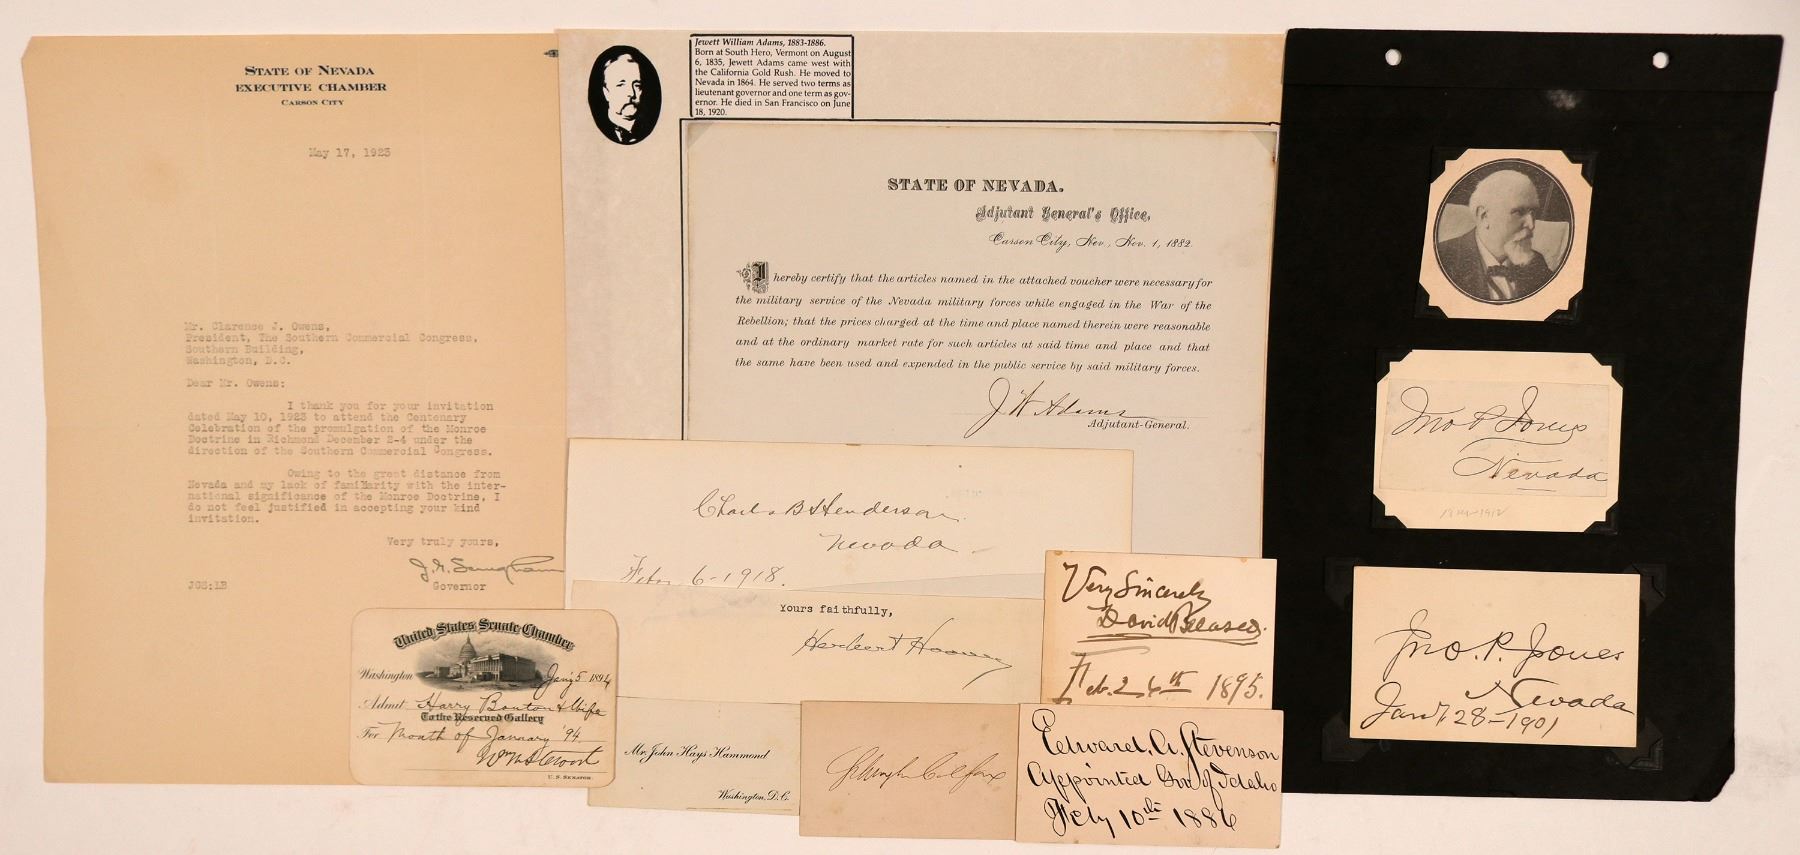 STATE OF NEVADA
EXECUTIVE CHAMBER
CARSON CITY
May 17, 1923
Mr. Clarence J. Owens,
President, The Southern Commercial Congress,
Southern Building,
Washington, D.C.
Dear Mr. Owens:
I thank you for your invitation
dated May 10, 1923 to attend the Centenary
Celebration of the promulgation of the Monroe
Doctrine in Richmond December 2-4 under the
direction of the Southern Commercial Congress.
Owing to the great distance from
Nevada and my lack of familiarity with the inter-
national significance of the Monroe Doctrine, I
do not feel justified in accepting your kind
invitation.
Very truly yours,
J. G. Scrugham
Governor
JGS:LB
United States Senate Chamber
Washington Jany 5 1894
Admit Harry Bouton & Wife
To the Reserved Gallery
For Month of January '94
Wm M Stewart
U.S. SENATOR.
Jewett William Adams, 1883-1886.
Born at South Hero, Vermont on August
6, 1835, Jewett Adams came west with
the California Gold Rush. He moved to
Nevada in 1864. He served two terms as
lieutenant governor and one term as gov-
ernor. He died in San Francisco on June
18, 1920.
STATE OF NEVADA.
Adjutant General's Office,
Carson City, Nev., Nov. 1, 1882.
I hereby certify that the articles named in the attached voucher were necessary for
the military service of the Nevada military forces while engaged in the War of the
Rebellion; that the prices charged at the time and place named therein were reasonable
and at the ordinary market rate for such articles at said time and place and that
the same have been used and expended in the public service by said military forces.
J W Adams
Adjutant-General.
Charles B Henderson
Nevada
Feby 6-1918.
Yours faithfully,
Herbert Hoover
Mr. John Hays Hammond
Washington, D.C.
Schuyler Colfax
Very Sincerely
David
Feb. 26th 1895.
Edward. A. Stevenson
Appointed Gov of Idaho
July 10th 1886
Jno P Jones
Nevada
Jno. P. Jones
Nevada
Jany 28-1901